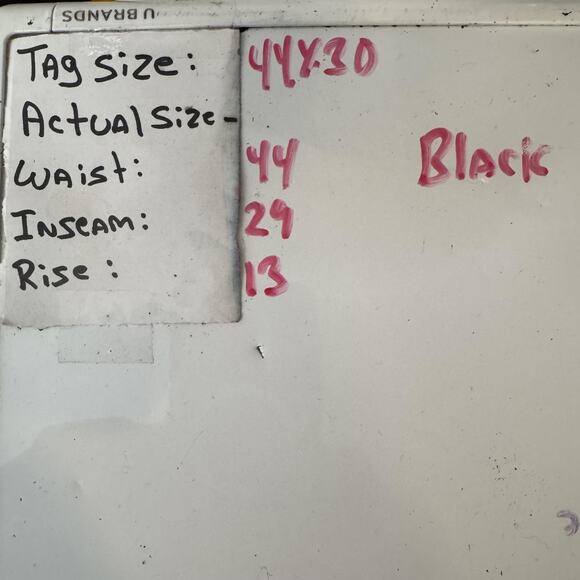 U BRANDS
TAg Size: 44x30
Actual Size-
Waist: 44 Black
Inseam: 29
Rise: 13